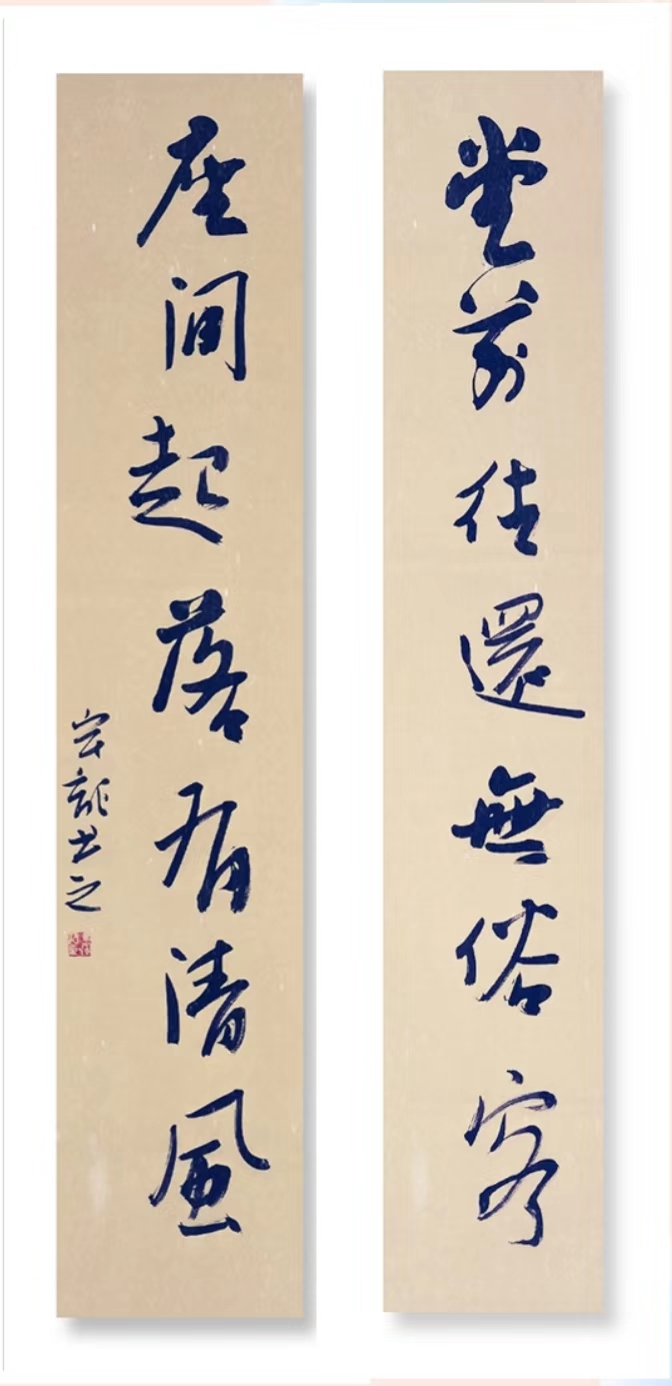 堂前往還無俗客
座間起落有清風
龍书之